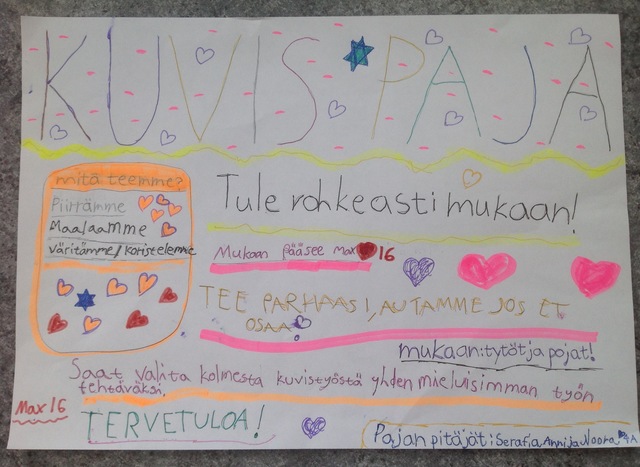 KUVIS PAJA
mitä teemme?
Piirrämme
Maalaamme
väritämme/koristelemme
Tule rohkeasti mukaan!
Mukaan pääsee max 16
TEE PARHAASI, AUTAMME JOS ET
OSAA
mukaan:tytöt ja pojat!
Saat valita kolmesta kuvistyöstä yhden mieluisimman työn
tehtäväksi.
Max 16
TERVETULOA!
Pajan pitäjät: Serafia, Anni ja Noora 4A